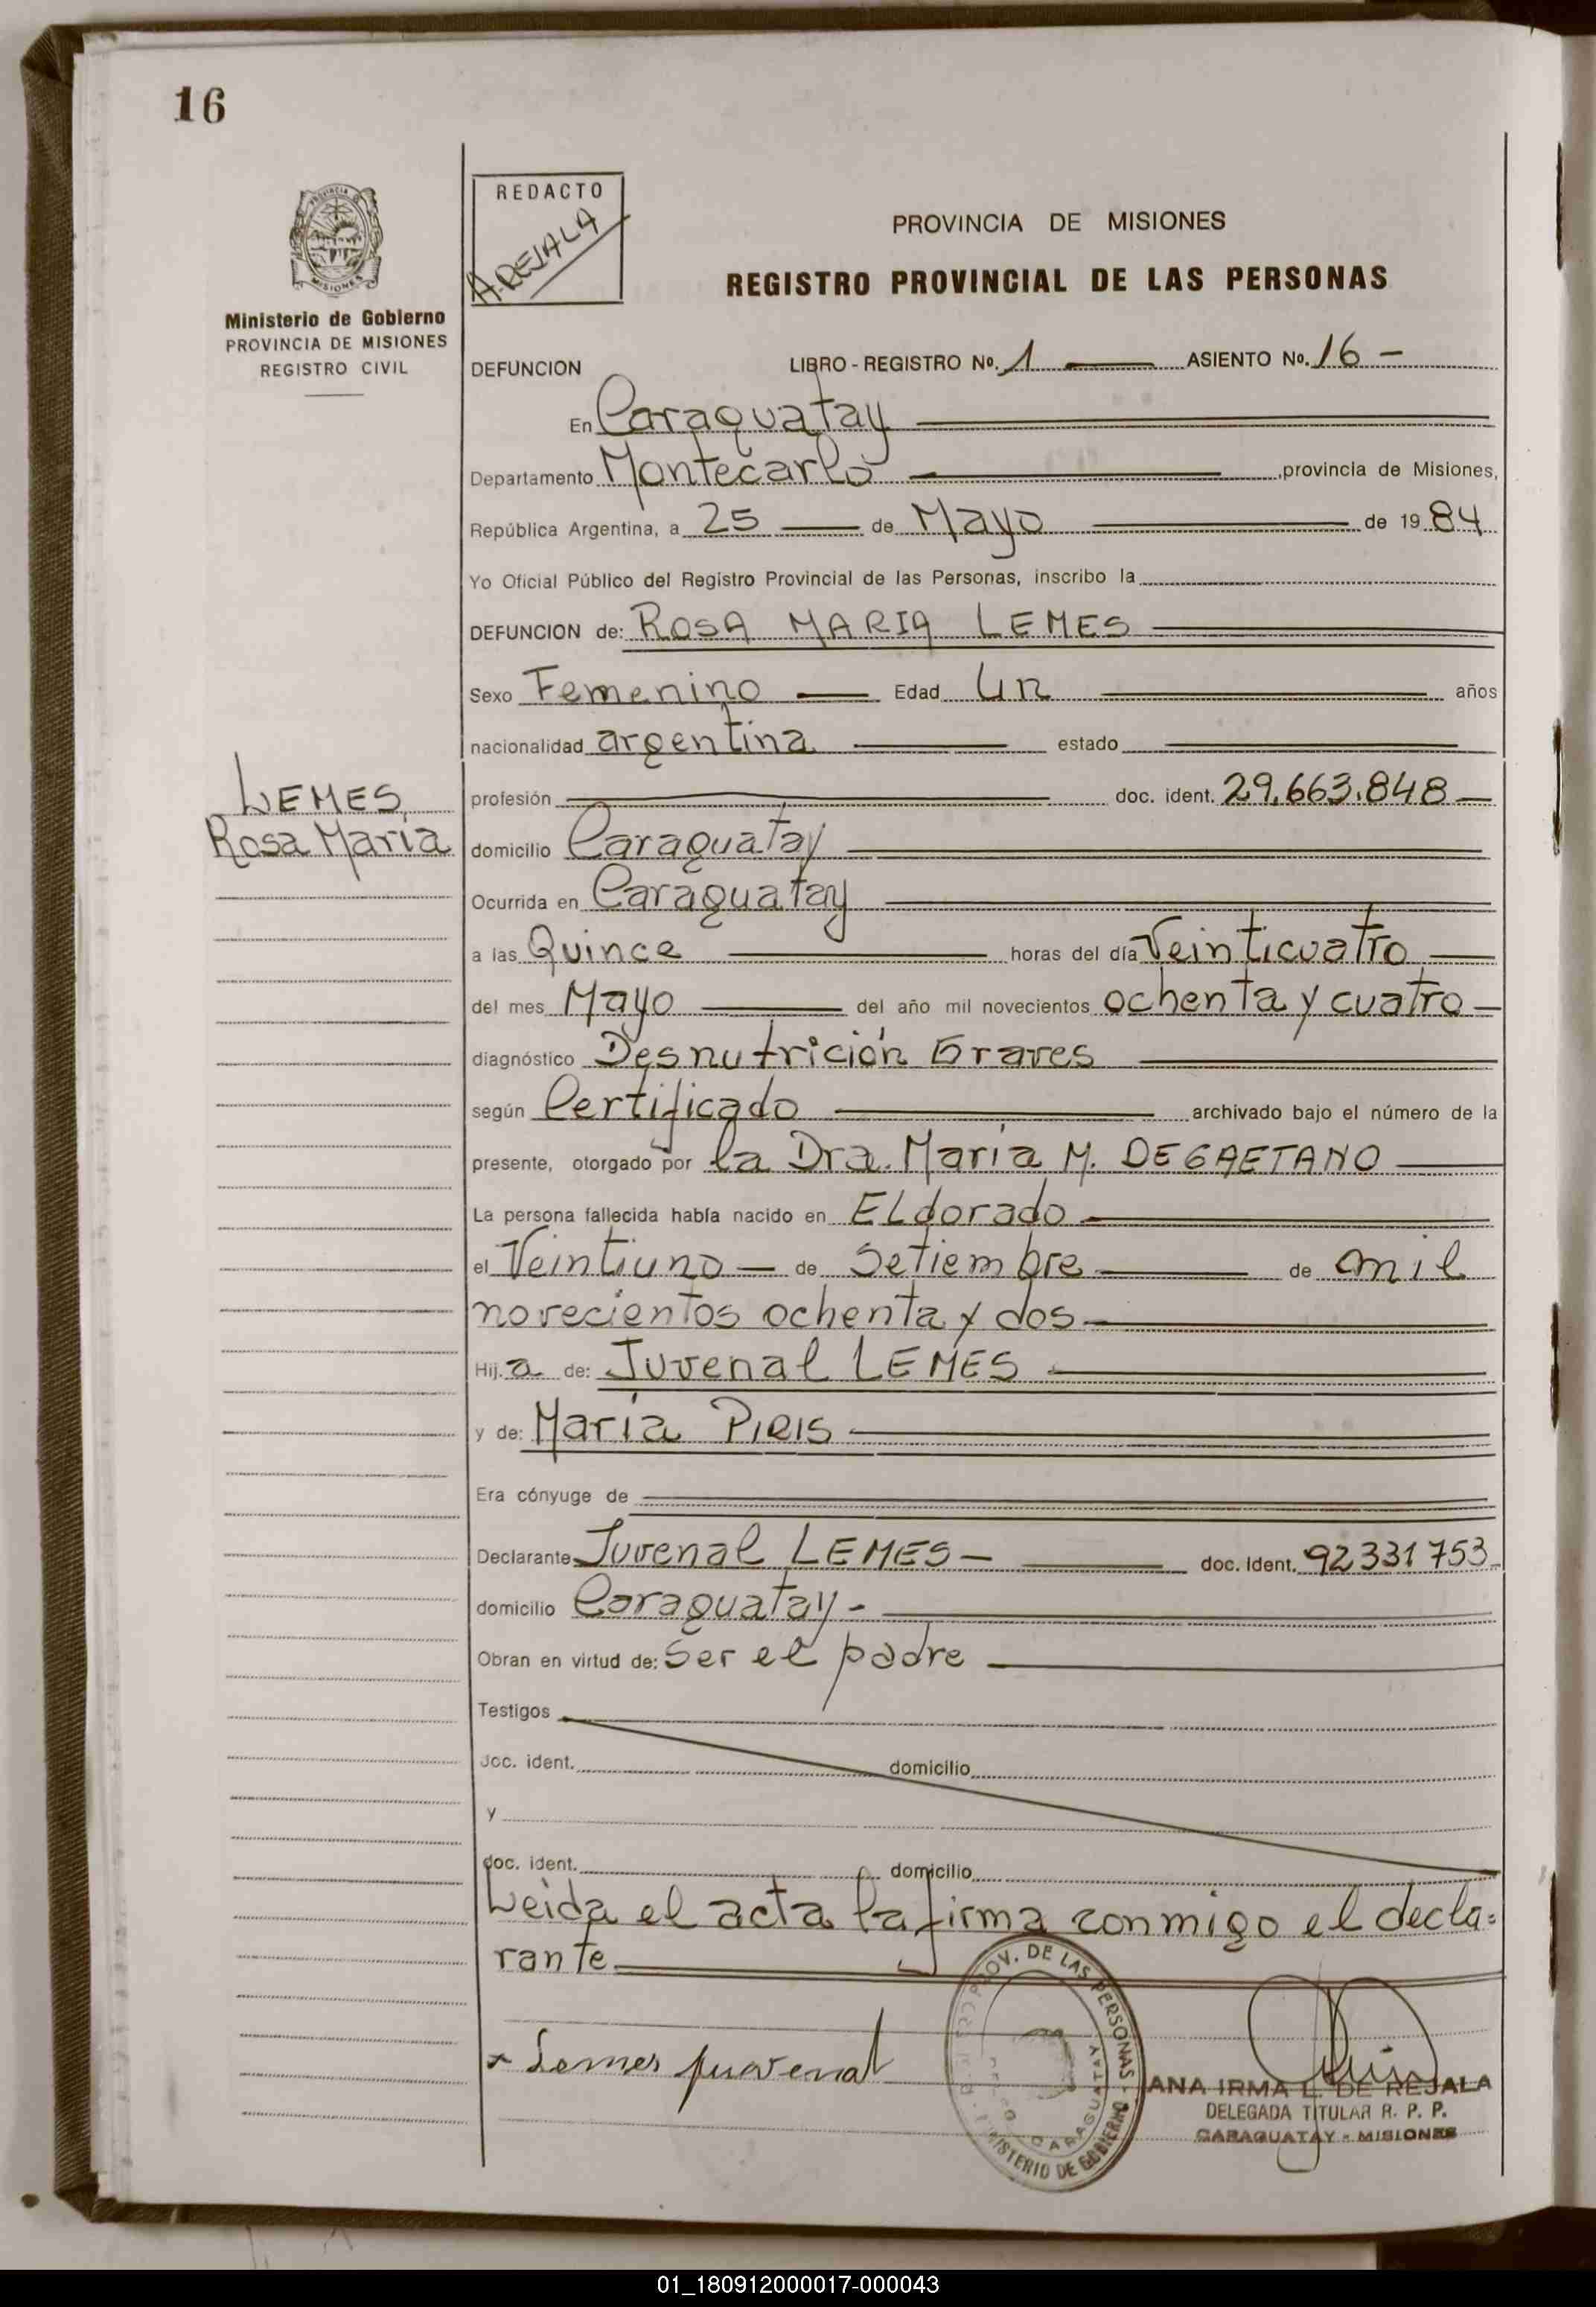 16
PROVINCIA
MISIONES
Ministerio de Gobierno
PROVINCIA DE MISIONES
REGISTRO CIVIL
REDACTO
A.REJALA
PROVINCIA DE MISIONES
REGISTRO PROVINCIAL DE LAS PERSONAS
DEFUNCION LIBRO - REGISTRO No. 1 ASIENTO No. 16 -
En Caraguatay
Departamento Montecarlo , provincia de Misiones,
República Argentina, a 25 de Mayo de 19 84
Yo Oficial Público del Registro Provincial de las Personas, inscribo la
DEFUNCION de: ROSA MARIA LEMES
Sexo Femenino Edad Un años
nacionalidad argentina estado
LEMES
Rosa María
profesión doc. ident. 29.663.848
domicilio Caraguatay
Ocurrida en Caraguatay
a las Quince horas del día Veinticuatro
del mes Mayo del año mil novecientos ochenta y cuatro
diagnóstico Desnutrición Graves
según Certificado archivado bajo el número de la
presente, otorgado por la Dra. María M. DEGAETANO
La persona fallecida había nacido en ELdorado
el Veintiuno de Setiembre de mil
novecientos ochenta y dos
Hij.a de: Juvenal LEMES
y de: María PIRIS
Era cónyuge de
Declarante Juvenal LEMES doc. ident. 92331753
domicilio Caraguatay -
Obran en virtud de: Ser el padre
Testigos
doc. ident. domicilio
y
doc. ident. domicilio
Leida el acta la firma conmigo el decla=
rante
x Lemes juvenal
PROV. DE LAS PERSONAS - MINISTERIO DE GOBIERNO
CARAGUATAY
ANA IRMA L. DE REJALA
DELEGADA TITULAR R. P. P.
CARAGUATAY - MISIONES
01_180912000017-000043